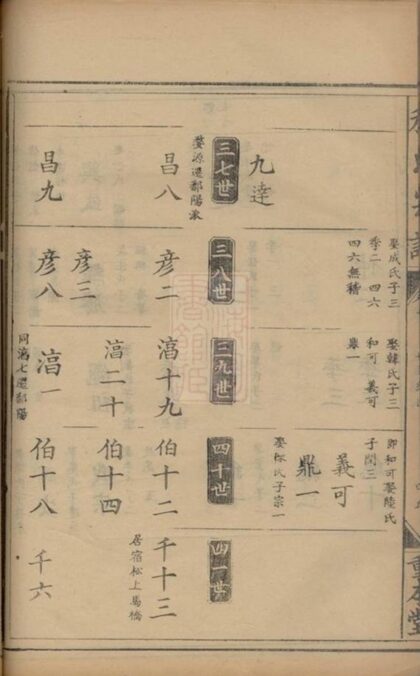 九達
娶成氏子三
季二　四六
四六無稽
娶韓氏子三
和可　義可
鼎一
即和可娶陸氏
子閏三
義可
鼎一
娶林氏子宗一
三七世
三八世
三九世
四十世
四一世
昌八
婺源遷鄱陽派
彥二
滈十九
伯十二
千十三
居宿松上馬橋
彥三
滈二十
伯十四
昌九
彥八
滈一
伯十八
千六
同滈七遷鄱陽